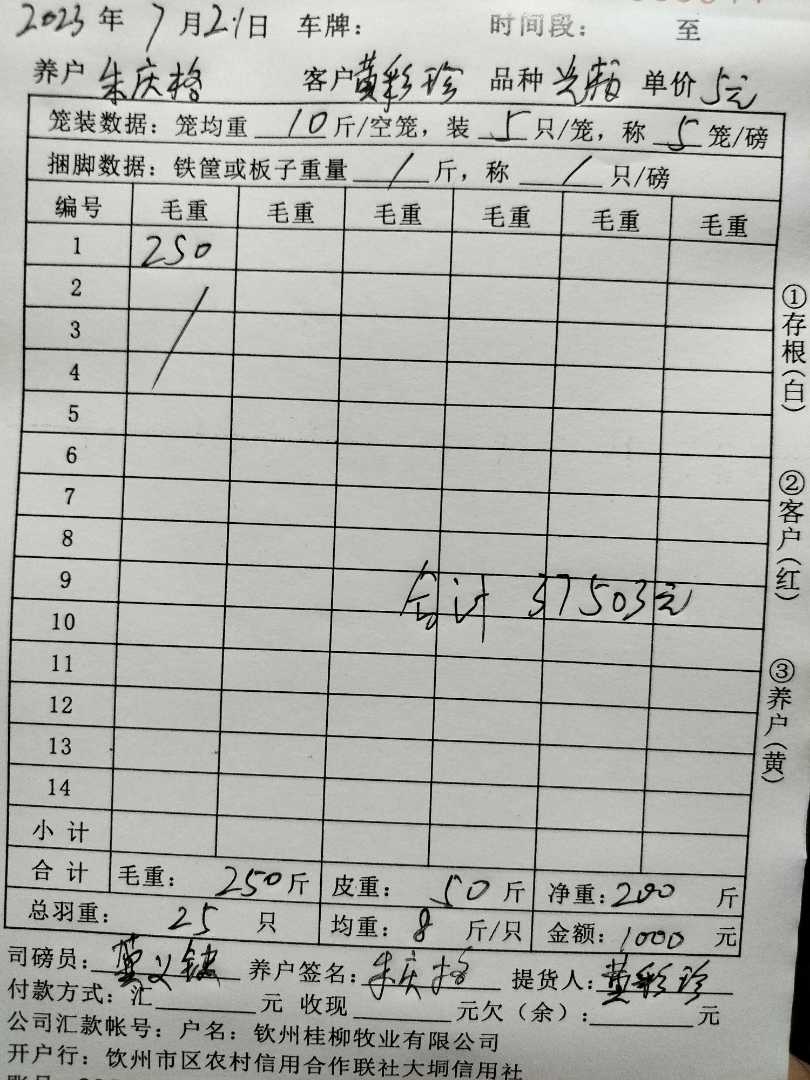 2023年7月21日 车牌： 时间段： 至
养户 朱庆格 客户 黄彩珍 品种 单价 5元
笼装数据：笼均重 10 斤/空笼，装 5 只/笼，称 5 笼/磅
捆脚数据：铁筐或板子重量 / 斤，称 / 只/磅
编号 毛重 毛重 毛重 毛重 毛重 毛重
1 250
2
3
4
5
6
7
8
9
合计 37503元
10
11
12
13
14
小计
合计 毛重： 250斤 皮重： 50斤 净重：200 斤
总羽重： 25 只 均重： 8 斤/只 金额：1000 元
司磅员： 养户签名：朱庆格 提货人：黄彩珍
付款方式：汇 元 收现 元欠（余）： 元
公司汇款帐号：户名：钦州桂柳牧业有限公司
开户行：饮州市区农村信用合作联社大垌信用社
①存根（白） ②客户（红） ③养户（黄）